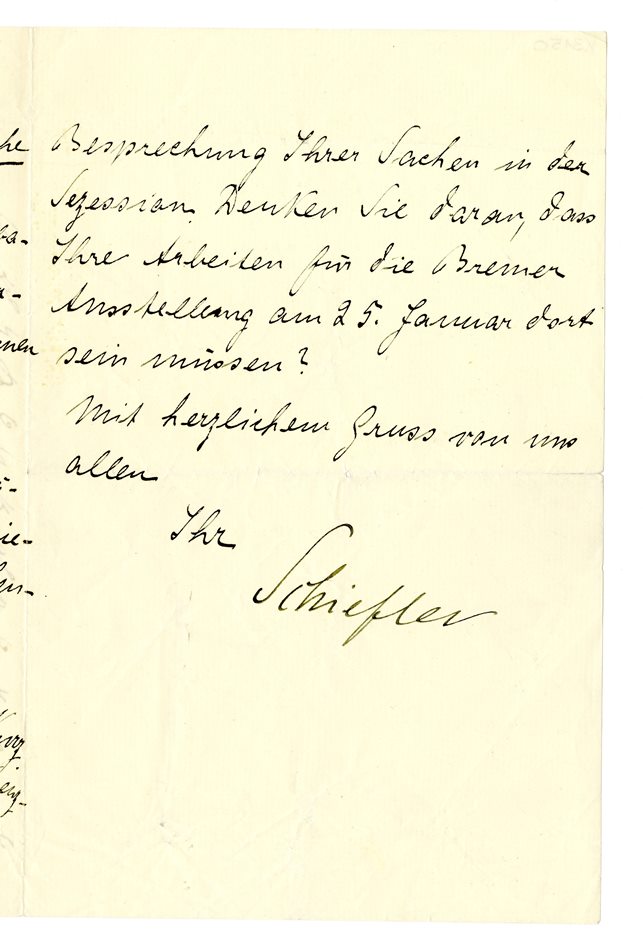 Besprechung Ihrer Sachen in der
Sezession. Denken Sie daran, dass
Ihre Arbeiten für die Bremer
Ausstellung am 25. Januar dort
sein müssen?
Mit herzlichem Gruss von uns
allen
Ihr
Schiefler